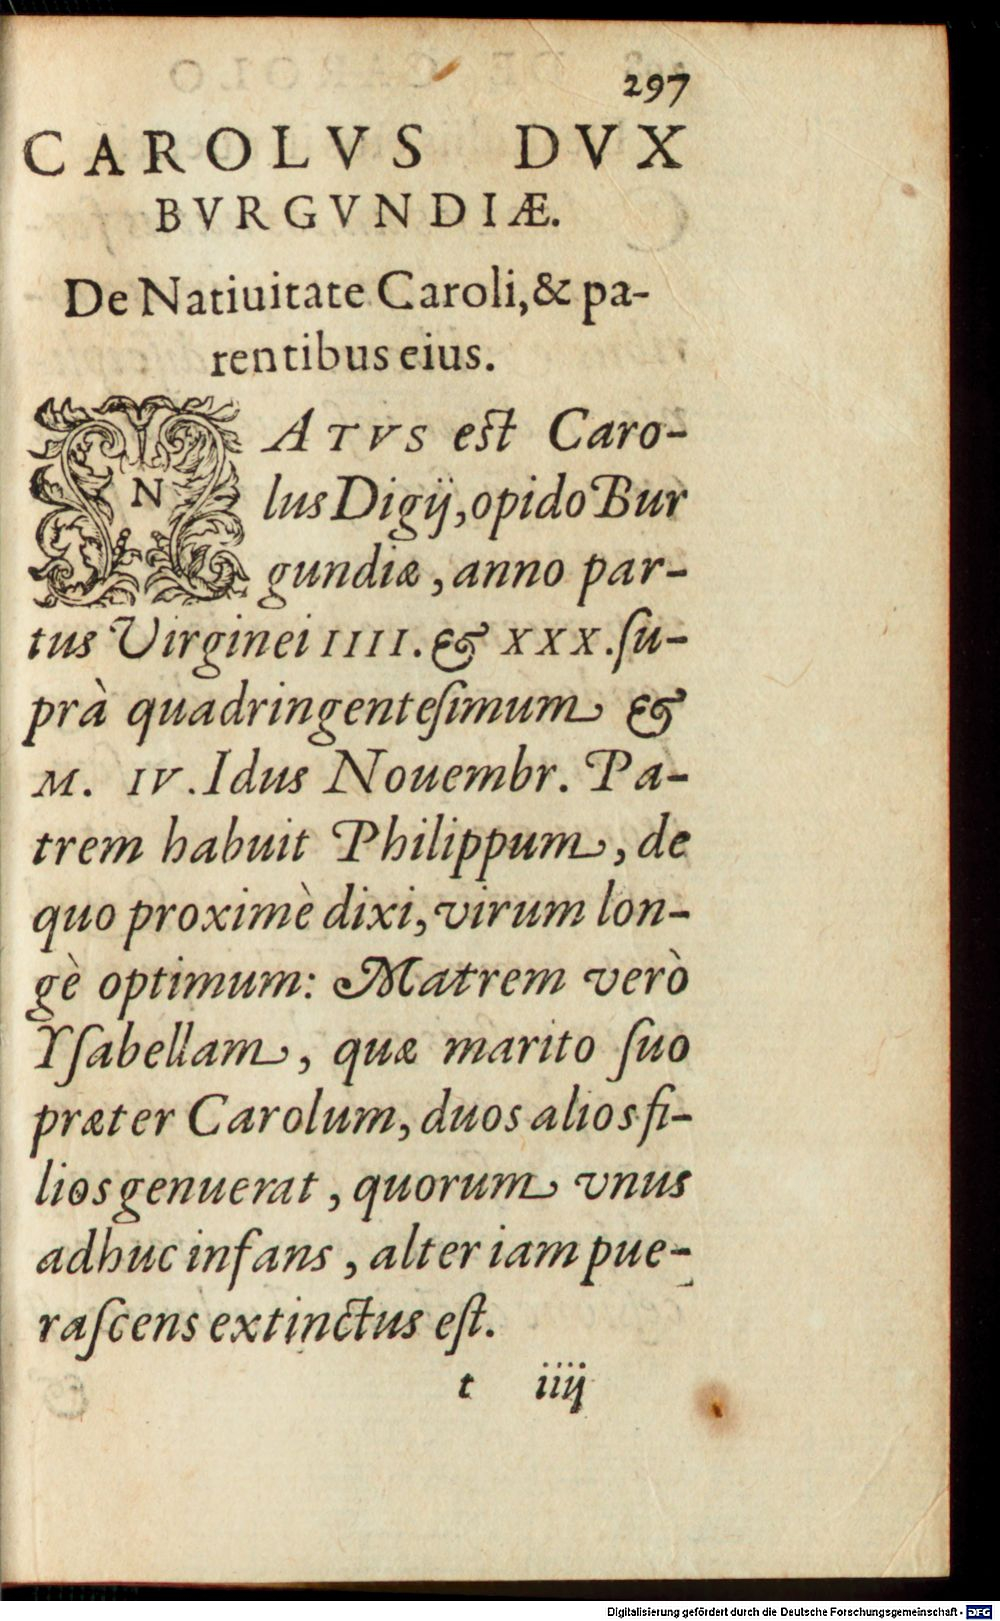 297
CAROLVS DVX
BVRGVNDIÆ.
De Natiuitate Caroli, & pa-
rentibus eius.
NATVS est Caro-
lus Digij, opido Bur
gundiæ, anno par-
tus Virginei IIII. & XXX. ſu-
prà quadringenteſimum &
M. IV. Idus Nouembr. Pa-
trem habuit Philippum, de
quo proximè dixi, virum lon-
gè optimum: Matrem verò
Yſabellam, quæ marito ſuo
præter Carolum, duos alios fi-
lios genuerat, quorum vnus
adhuc infans, alter iam pue-
raſcens extinctus eſt.
t iiij
Digitalisierung gefördert durch die Deutsche Forschungsgemeinschaft - DFG